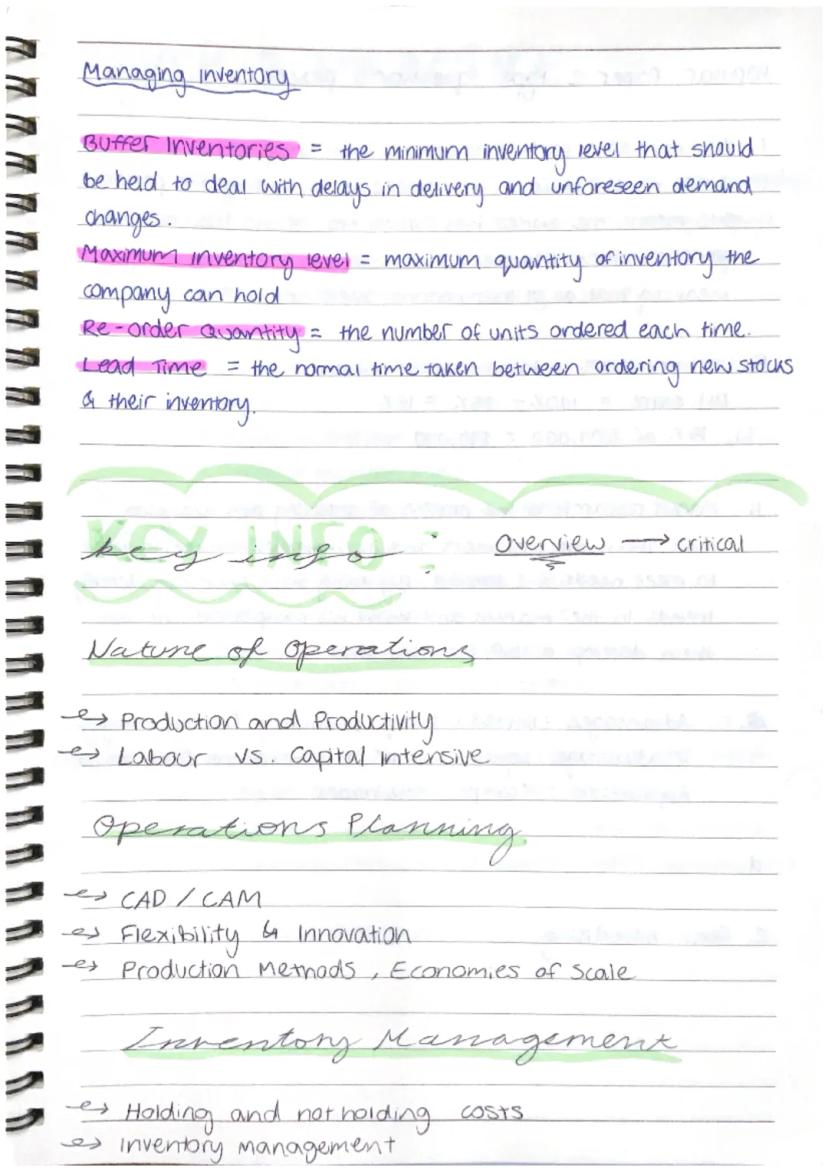 Managing inventory
Buffer Inventories = the minimum inventory level that should
be held to deal with delays in delivery and unforeseen demand
changes.
Maximum inventory level = maximum quantity of inventory the
company can hold
Re-order Quantity = the number of units ordered each time.
Lead Time = the normal time taken between ordering new stocks
& their inventory.
KEY INFO
key info : Overview → critical
Nature of Operations
→ Production and Productivity
→ Labour vs. Capital Intensive
Operations Planning
→ CAD / CAM
→ Flexibility & Innovation
→ Production Methods, Economies of Scale
Inventory Management
→ Holding and not holding costs
→ Inventory management